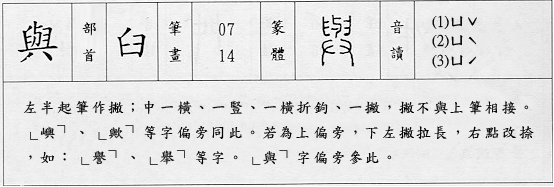 與 部首 臼 筆畫 07 14 篆體 音讀 (1)ㄩˇ
(2)ㄩˋ
(3)ㄩˊ
左半起筆作撇；中一橫、一豎、一橫折鉤、一撇，撇不與上筆相接。
﹂嶼﹁、﹂歟﹁等字偏旁同此。若為上偏旁，下左撇拉長，右點改捺
，如：﹂譽﹁、﹂舉﹁等字。﹂與﹁字偏旁參此。